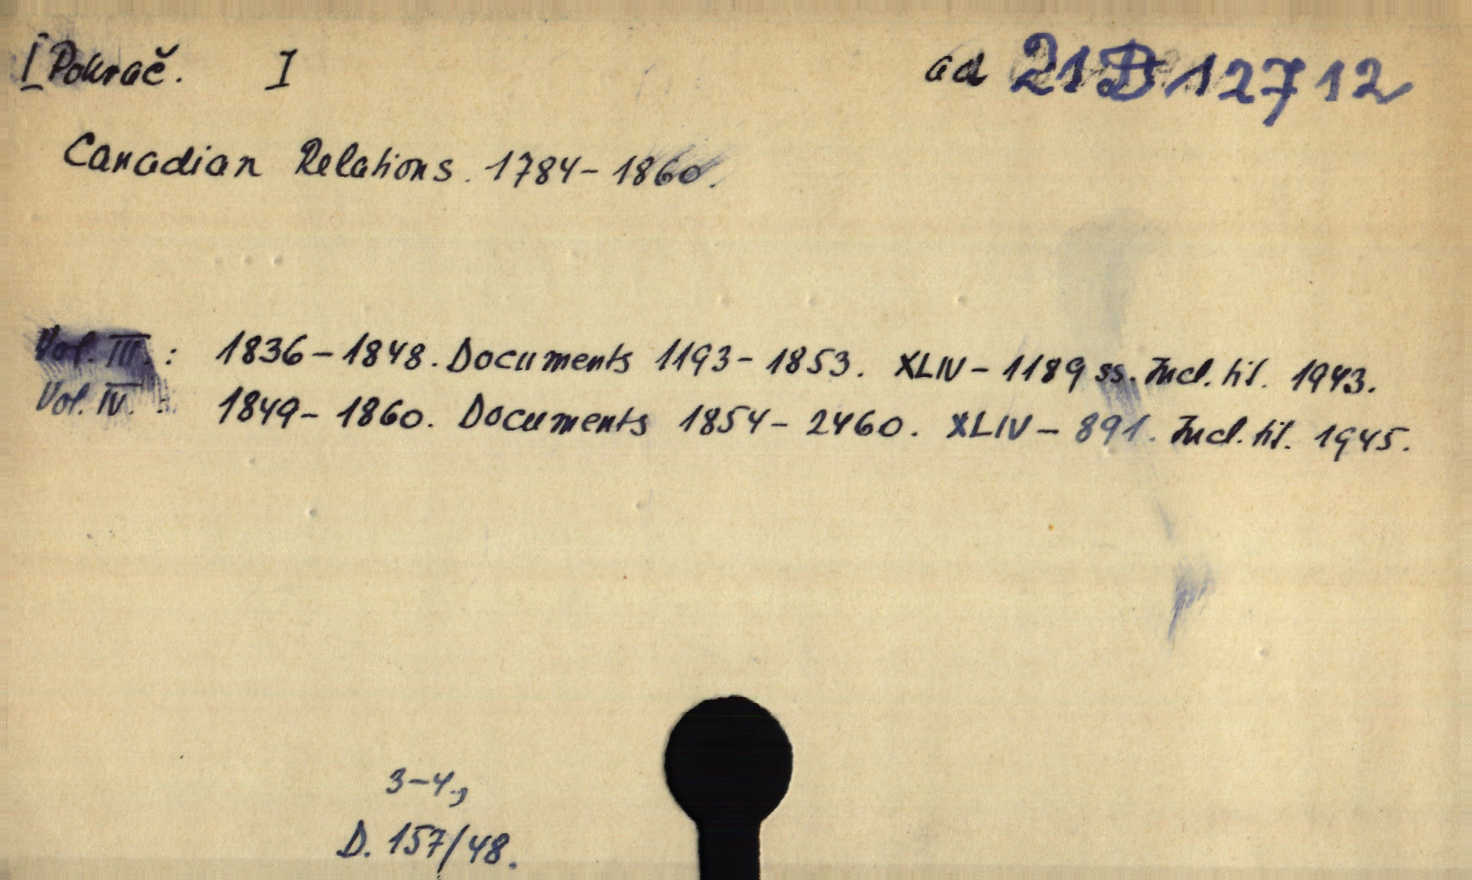 I Pokrač. I ad 21 D 12712
Canadian Relations. 1784-1860.
Vol. III. : 1836-1848. Documents 1193-1853. XLIV-1189 ss. Incl. til. 1943.
Vol. IV. : 1849-1860. Documents 1854-2460. XLIV-891. Incl. til. 1945.
3-4.,
D. 157/48.